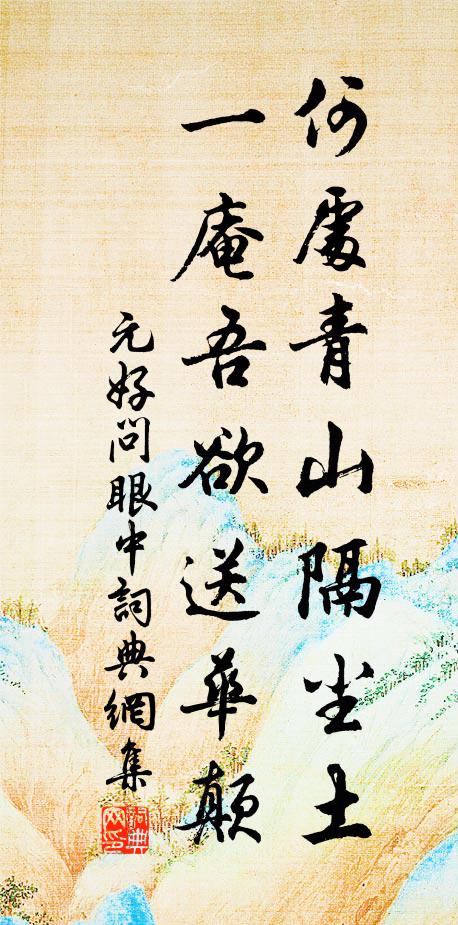 何處青山隔尘土
一庵吾欲送華顛
元好问眼中詞典網集
詞典
网印